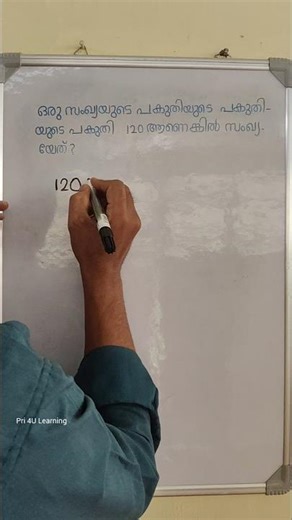 ഒരു സംഖ്യയുടെ പകുതിയുടെ പകുതി-
യുടെ പകുതി 120 ആണെങ്കിൽ സംഖ്യ-
യേത് ?
120
Pri 4U Learning